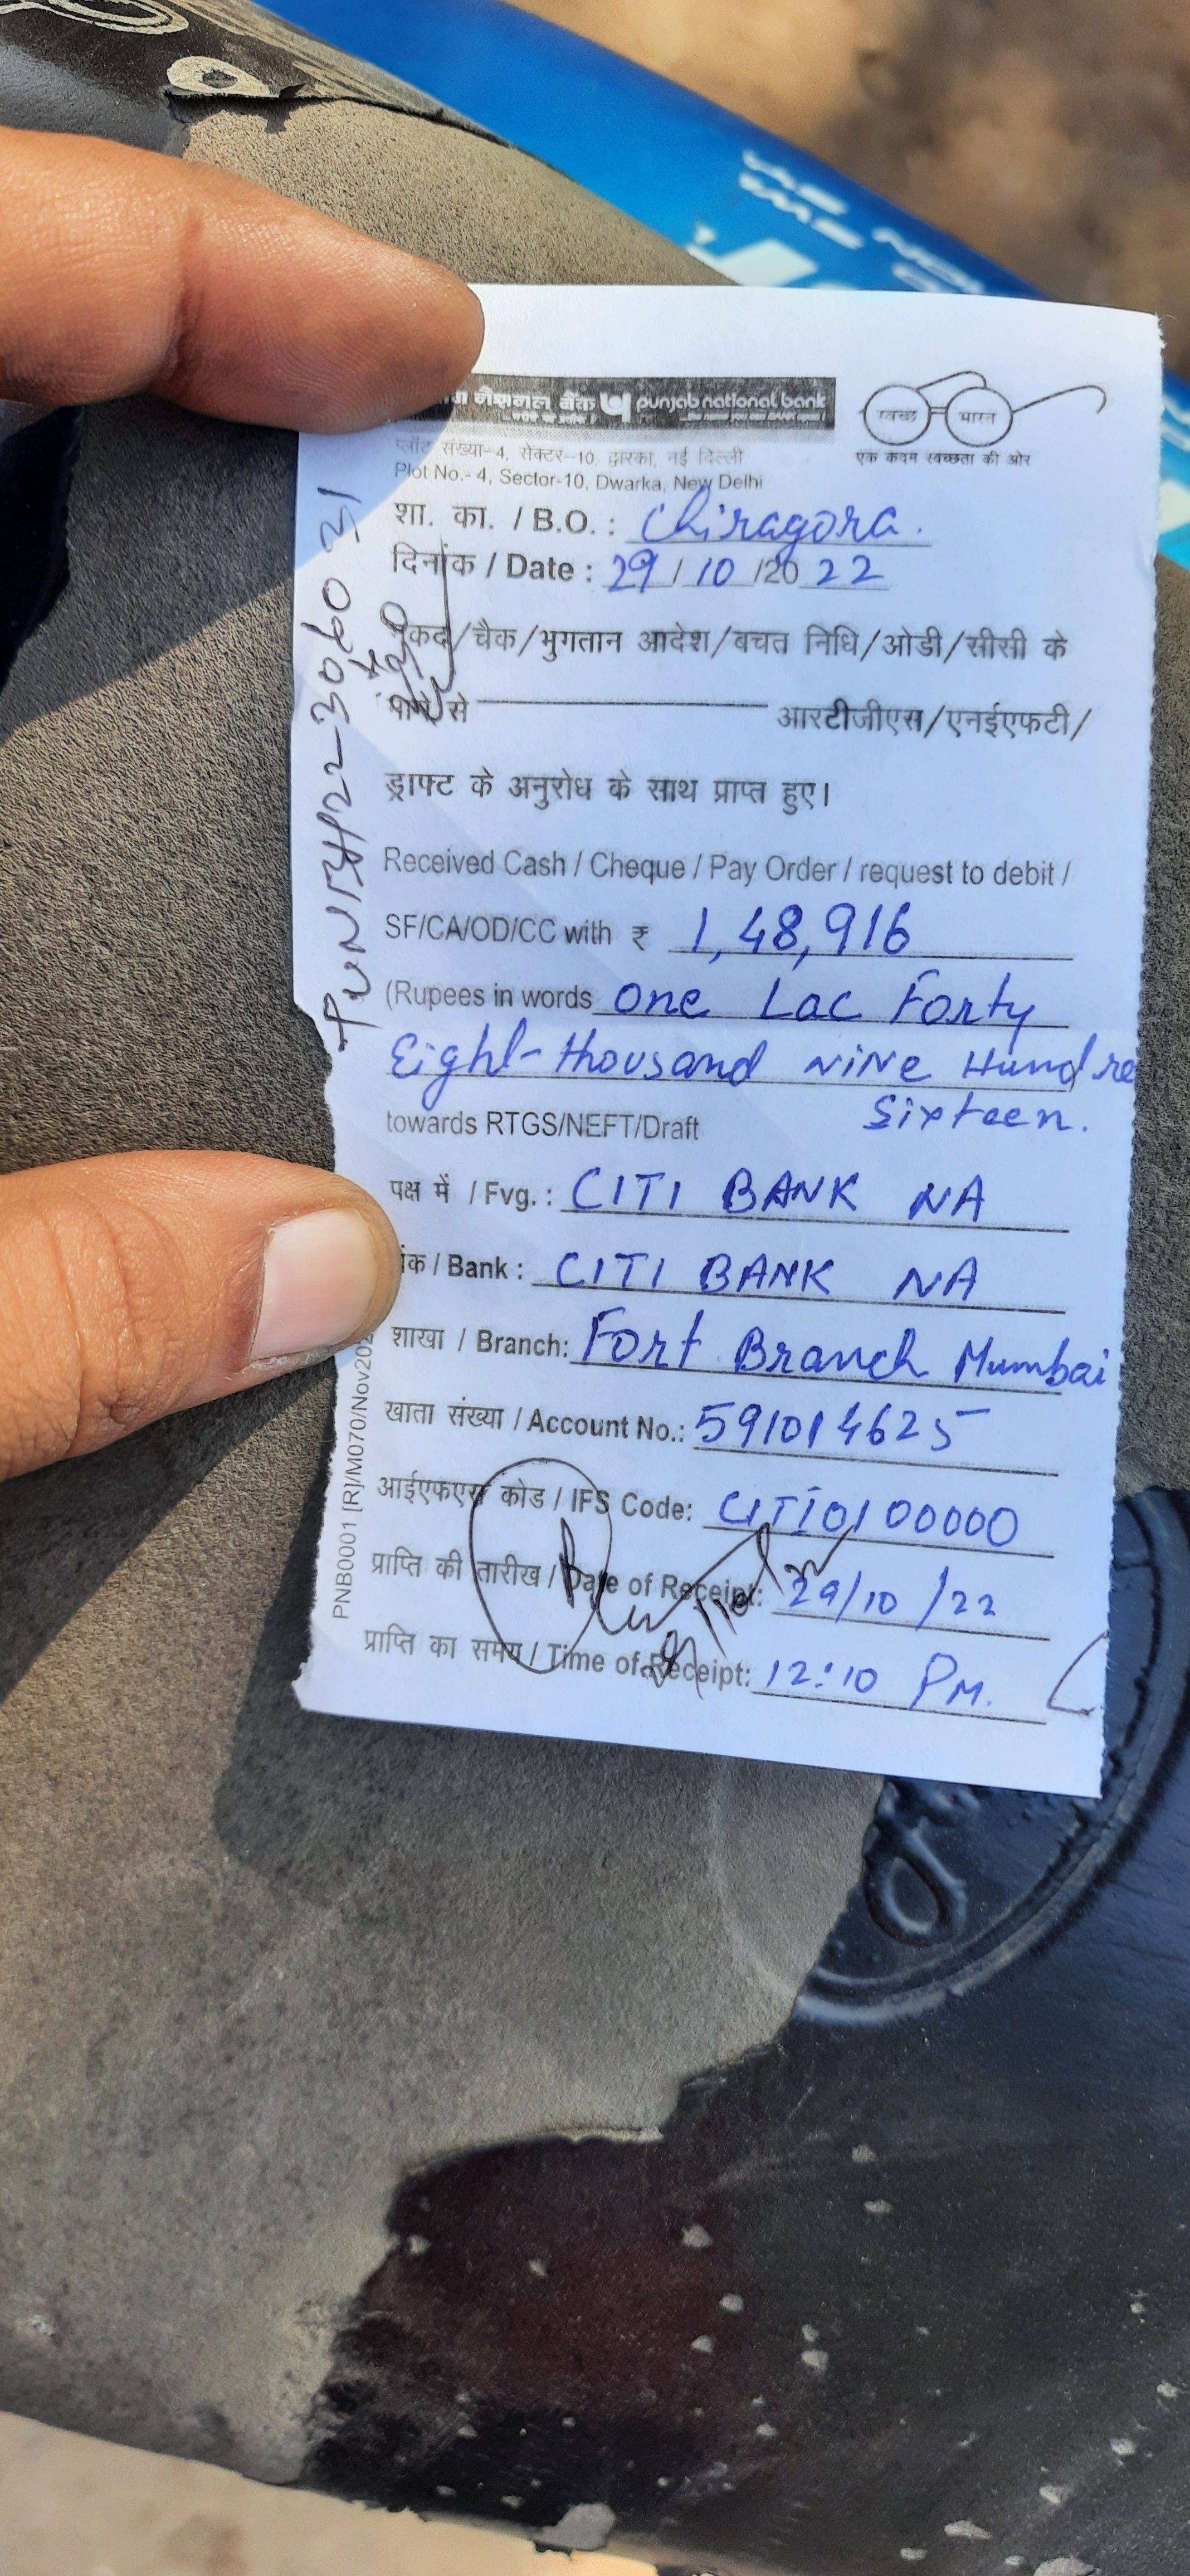 नैशनल बैंक punjab national bank
...भरोसे का प्रतीक! ...the name you can BANK upon!
स्वच्छ भारत
एक कदम स्वच्छता की ओर
प्लॉट संख्या-4, सेक्टर-10, द्वारका, नई दिल्ली
Plot No.- 4, Sector-10, Dwarka, New Delhi
शा. का. / B.O. : Chiragora.
दिनांक / Date : 29 / 10 /20 22
नकद/चैक/भुगतान आदेश/बचत निधि/ओडी/सीसी के
नामे से आरटीजीएस/एनईएफटी/
ड्राफ्ट के अनुरोध के साथ प्राप्त हुए।
Received Cash / Cheque / Pay Order / request to debit /
SF/CA/OD/CC with ₹ 1,48,916
(Rupees in words One Lac Forty
Eight thousand NiNe Hundre
Sixteen.
towards RTGS/NEFT/Draft
पक्ष में / Fvg. : CITI BANK NA
ंक / Bank : CITI BANK NA
शाखा / Branch: Fort Branch Mumbai
खाता संख्या / Account No.: 591014625
आईएफएस कोड / IFS Code: CITI0100000
प्राप्ति की तारीख / Date of Receipt: 29/10 /22
प्राप्ति का समय / Time of Receipt: 12:10 PM.
PNB0001 [R]/M070/Nov202